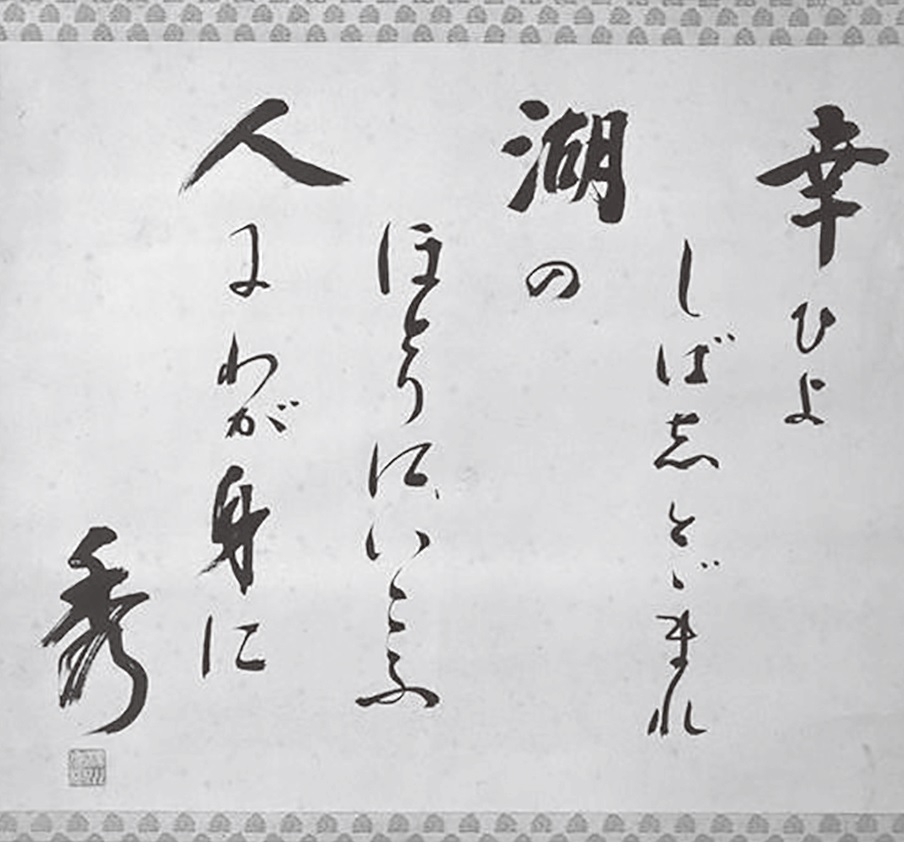 幸ひよ
しば志とゞまれ
湖の
ほとりにいこふ
人にわが身に
秀